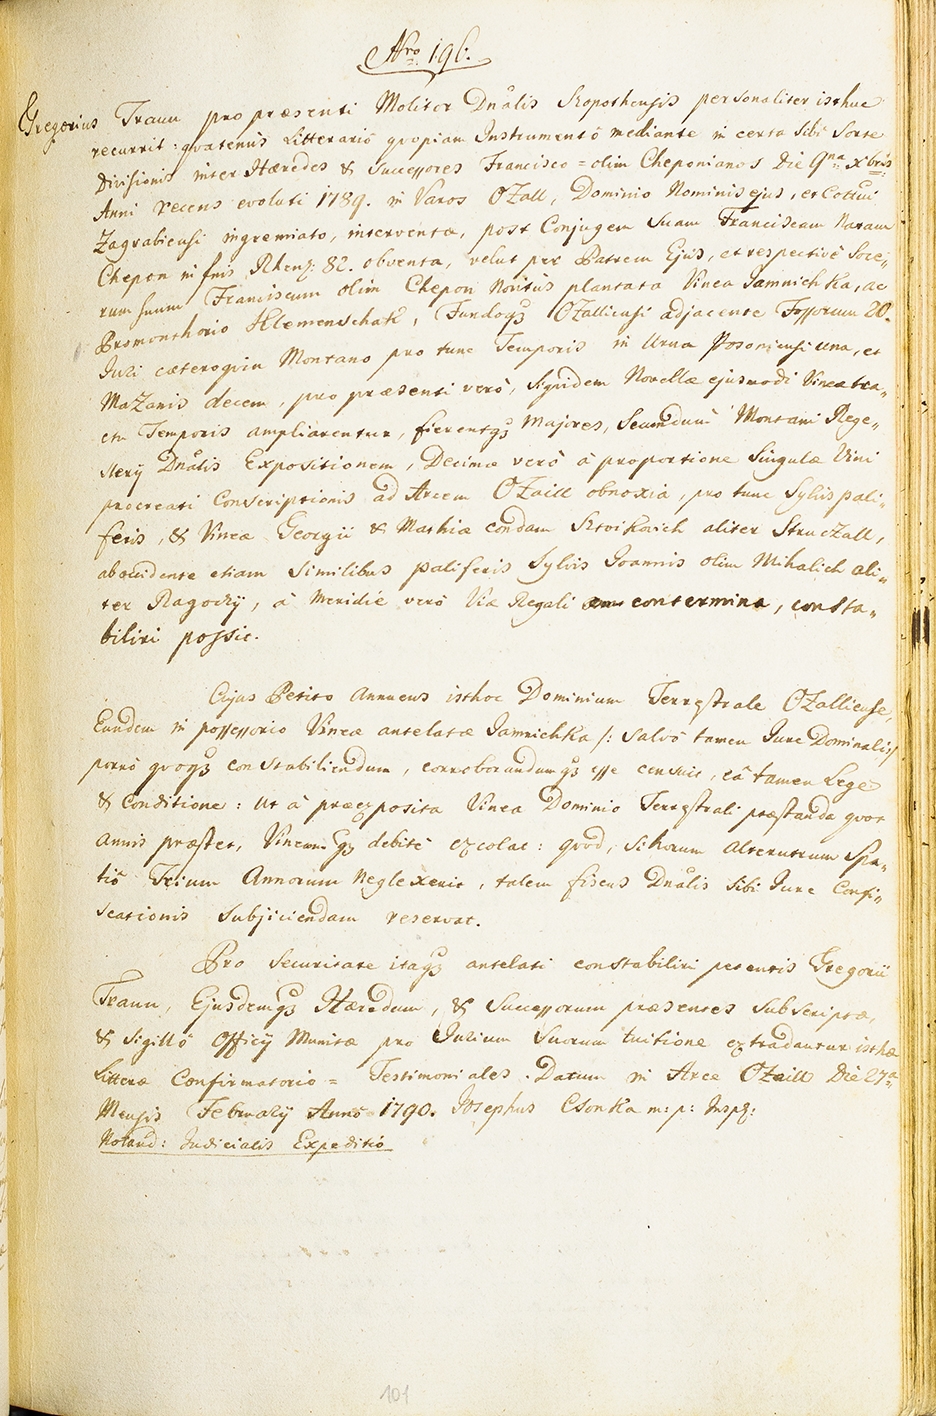 Nro 196.
Gregorius Traun pro præsenti Molitor Dnalis Sopothensis personaliter isthuc
recurrit: quatenus Litterario quopiam Instrumento mediante in certa Sibi Sorte
Divisionis inter Hæredes & Successores Francisco = olim Cheponianos Die 9na Xbris
Anni recens evoluti 1789. in Varos OZall, Dominio Nominis ejus, et Cottui
Zagrabiensi ingremiato, interventa, post Conjugem Suam Franciscam Natam
Chepon in fnis Rhenz: 82. obventa, velut per Patrem Ejus, et respective Soce„
rum suum Franciscum olim Chepon Noviter plantata Vinea Jamnichka, ac
Promonthorio Klemenschak, Fundoqz OZalliensi adjacente Fossorum 20.
Juri cæteroquin Montano pro tunc Temporis in Urna Posoniensi una, et
MaZanis decem, pro præsenti verò, siquidem Novellæ ejusmodi Vineæ tra„
ctu Temporis ampliarentur, fierentqz Majores, Secundum Montani Rege„
sterij Dnalis Expositionem, Decimæ verò à proportione Singulæ Vini
procreati Conscriptionis ad Arcem OZaill obnoxia, pro tunc Sylvis pali„
feris, & Vineæ Georgii & Mathiæ condam Stoikovich aliter StrucZall,
ab occidente etiam Similibus paliferis Sylvis Joannis olim Mihalich ali„
ter RagocZij, à Meridie verò Viæ Regali contermina, consta„
biliri possit.
Cujus Petito Annuens isthoc Dominium Terrestrale OZalliense,
Eundem in possessorio Vineæ antelatæ Jamnichka /: Salvô tamen Jure Dominali :/
porrò quoqz constabiliendum, corroborandumqz esse censuit, eâ tamen Lege
& Conditione: Ut à præexposita Vinea Dominio Terrestrali præstanda quot
Annis præstet, Vineamqz debitè excolat: quod, si horum Alterutrum Spa„
tiô Trium Annorum Neglexerit, talem fiscus Dnalis Sibi Jure Confi„
scationis Subjiciendam reservat.
Pro Securitate itaqz antelati constabiliri petentis Gregorii
Traun, Ejusdemqz Hæredum, & Successorum præsentes Subscriptæ,
& Sigillô Officij Munitæ pro Jurium Suorum tuitione extradantur isthæ
Litteræ Confirmatorio = Testimoniales. Datum in Arce OZaill Die 27a
Mensis Februarij Annô 1790. Josephus Csonka m: p: Inspr:
Notand: Judicialis Expeditio
101